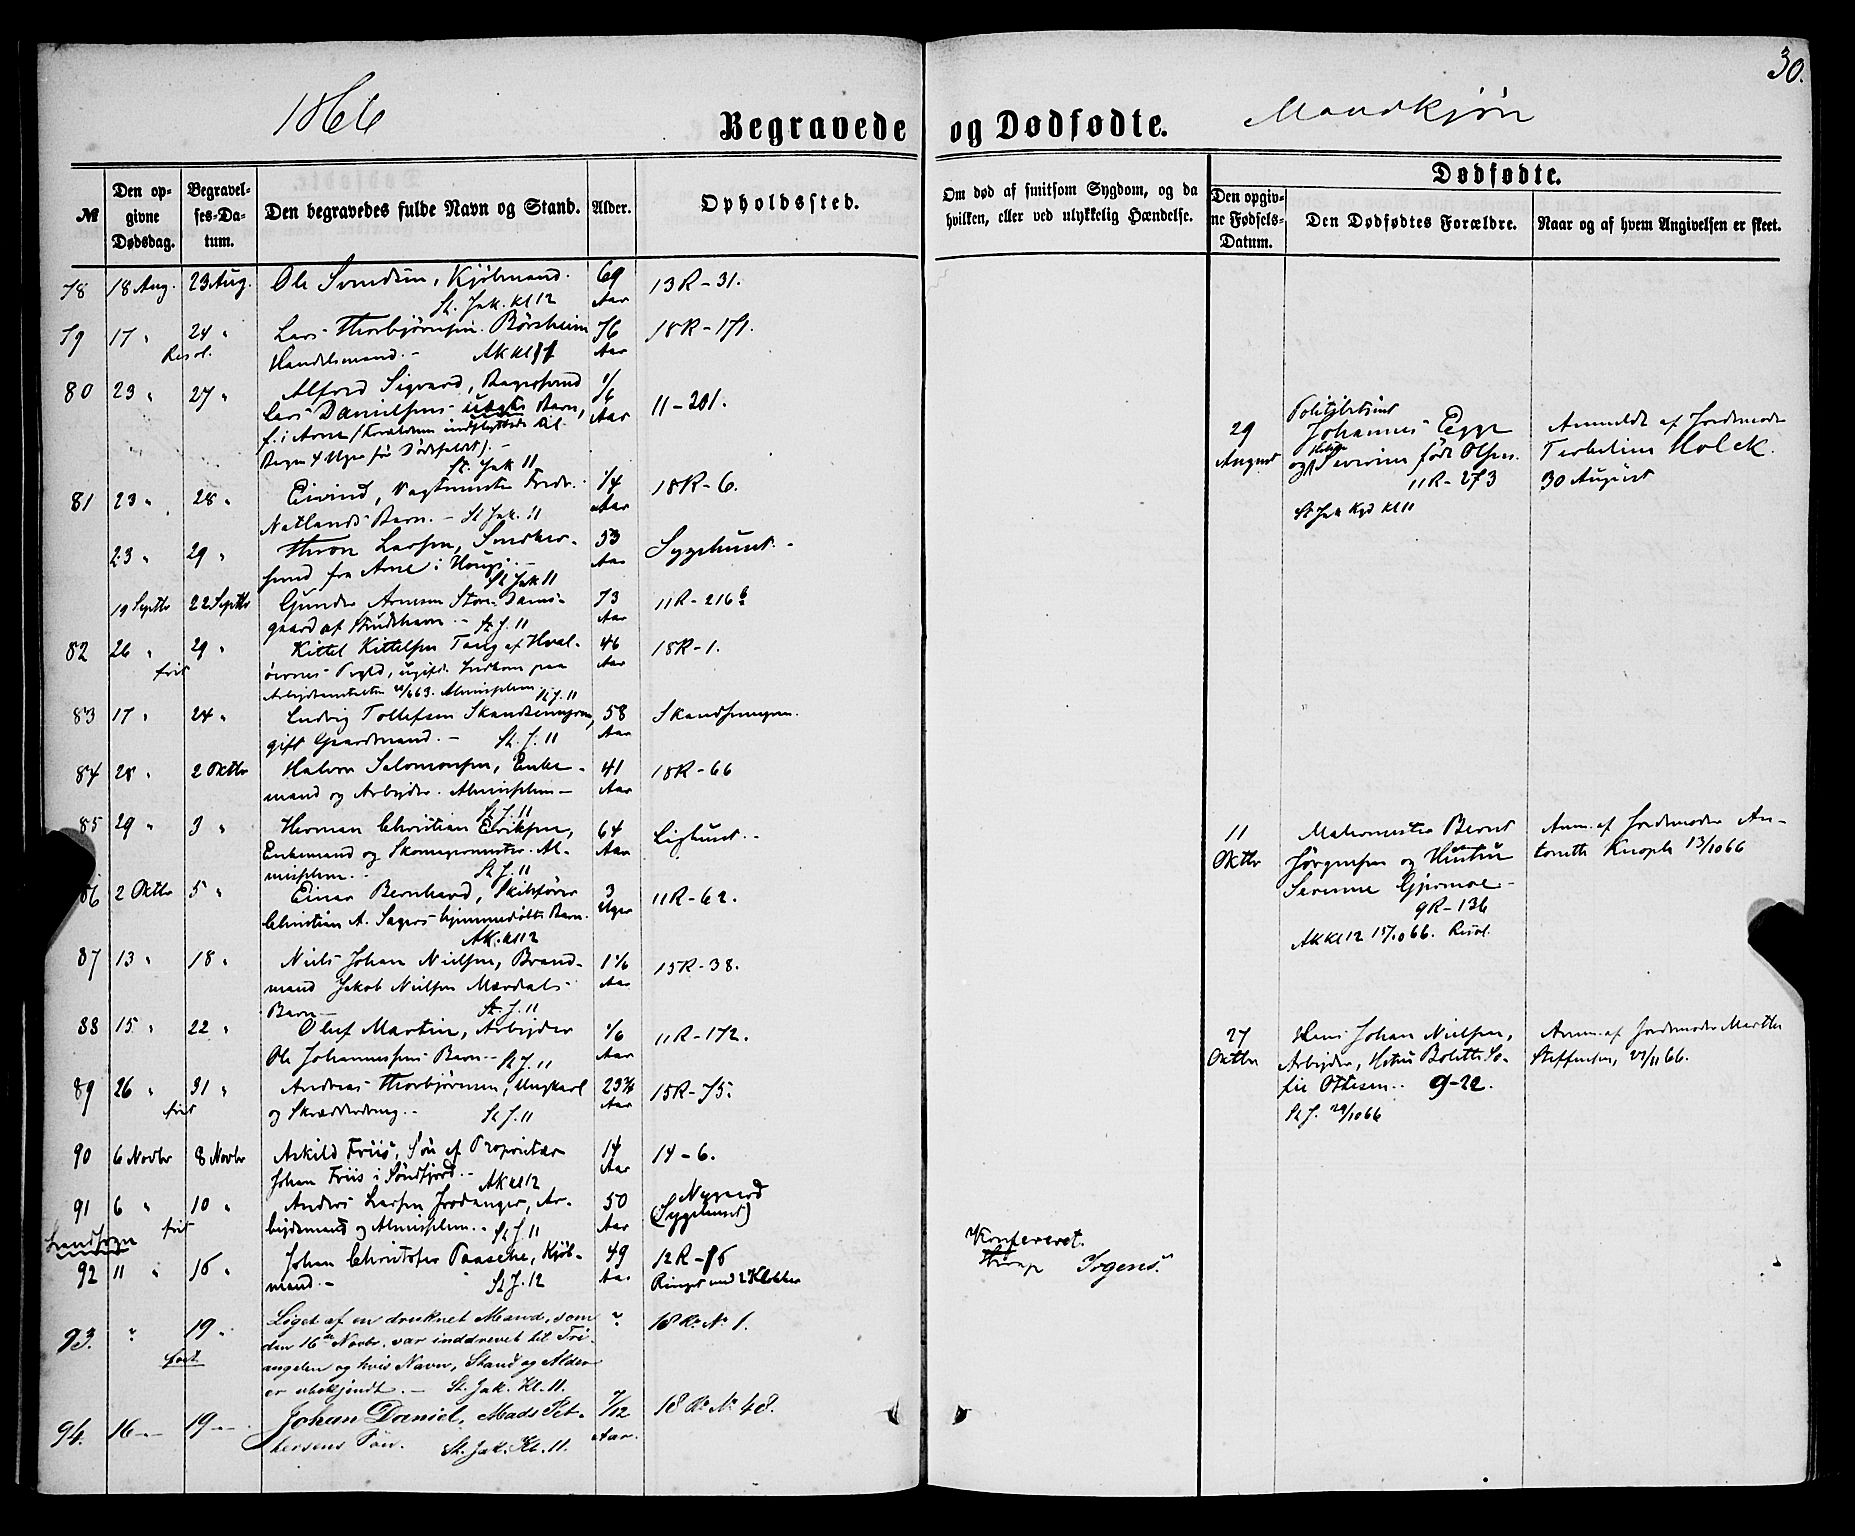 30.
1866
Begravede og Dødfødte.
Mandkjøn
№
Den opgivne Dødsdag.
Begravelses-Datum.
Den begravedes fulde Navn og Stand.
Alder.
Opholdssted.
Om død af smitsom Sygdom, og da hvilken, eller ved ulykkelig Hændelse.
Dødfødte.
Den opgivne Fødsels-Datum.
Den Dødfødtes Forældre.
Naar og af hvem Angivelsen er skeet.
78 18 Aug. 23 Aug. Ole Svendsen, Kjøbmand. 69 Aar 13 R-31.
St. Jak. kl 12
79 17 " 24 " Lars Thorbjørnsen Børsheim 76 Aar 18R-171.
Handelsmand.- AK kl 11
80 23 " 27 " Alfred Sigvard, Bagersvend 1/6 Aar 11-201.
Lars Danielsens uægte Barn,
f. i Arne (Forældrene indflyttede til
Bergen 4 Uger før Dødsfaldet).-
St. Jak 11
81 23 " 28 " Eivind, Vagtmester Fredr. 1/4 Aar 18R-6.
Natlands Barn.- St Jak. 11
23 " 29 " Larsen, Snedker- 53 Aar Sygehuset.-
svend fra Arne i Houg.-
St Jak 11
19 Septbr 22 Septbr Gunder Arnesen Store Dams- 73 Aar 11R-216b
gaard af .- St. J. 11
82 26 " 29 " Kittel Kittelsen Tang af Hval- 46 Aar 18R-1.
frit øernes Pgld, ugift. Indkom paa
Arbeidsanstalten 63. Almisselem. St J. 11
83 17 " 24 " Ludvig Tollefsen Skandsemyren, 58 Aar Skandsemyren.
gift Gaardmand.- St. J. 11
84 28 " 2 Oktbr Halvor Salomonsen, Enke- 41 Aar 18R-66
mand og Arbejder. Almisselem-
St J. 11
85 29 " 3 " Herman Christian Eriksen, 64 Aar Lighuset.-
Enkemand og Skomagermester. Al-
misselem.- St J. 11
86 2 Oktbr 5 " Einar Bernhard, Skibsfører 3 Uger 11R-62.
Christian A. Sagers hjemmedøbte Barn.
AK. kl 12
87 13 " 18 " Niels Johan Nielsen, Brand- 1 1/6 Aar 15R-38.
mand Jakob Nielsen Mærdals
Barn- St. J. 11
88 15 " 22 " Oluf Martin, Arbejder 1/6 Aar 11R-172.
Ole Johannessens Barn.- St J. 11
89 26 " 31 " Andreas Thorbjørnsen, Ungkarl 23 3/4 Aar 15R-75.
frit og Skrædderdreng.- St J. 11
90 6 Novbr 8 Novbr Askild Friis, Søn af Proprietær 14 Aar 14-6.
Johan Friis i Søndfjord.- AK kl 12
91 6 " 10 " Anders Larsen Jordanger, Ar- 50 Aar Nygaard
frit bejdsmand og Almisselem.- St J. 11 (Sygehuset)
Landsogn
92 11 " 16 " Johan Christofer Paasche, Kjøb- 49 Aar 12R-16
mand.- St J. 12 Ringet med 2 Klokker
93. " 19 " Liget af en druknet Mand, som " 18 R. No 1.
den 16de Novbr. var inddrevet til Tri-
angelen og hvis Navn, Stand og Alder
er ubekjendt.- St. Jak. Kl. 11.
94. 16-"- 19-"- Johan Daniel, Mads Pet- 7/12 Aar. 18 R. No 48.
tersens Søn. St. Jak. Kl. 11.
Konfereret.
Irgens.
29 August
Politibetjent
Johannes Egge
og Hustru Severine født Olsen.
11R-273
St Jak Kgd kl 11
Anmeldt af Jordemoder
Holck.
30 August
11 Oktbr
Malermester Bernt
Jørgensen og Hustru
Gjermoe-
9R-136
AK kl 12 15/10 66. Resol.
Anm. af Jordemoder An-
tonette Knoph 13/10 66
27 Oktbr
Hans Johan Nielsen,
Arbejder, Hstru Bolette So-
fie Ottesen.. 9-22.
St J. 29/10 66
Anm. af Jordemoder Marthe
Steffensen, 22/11 66.